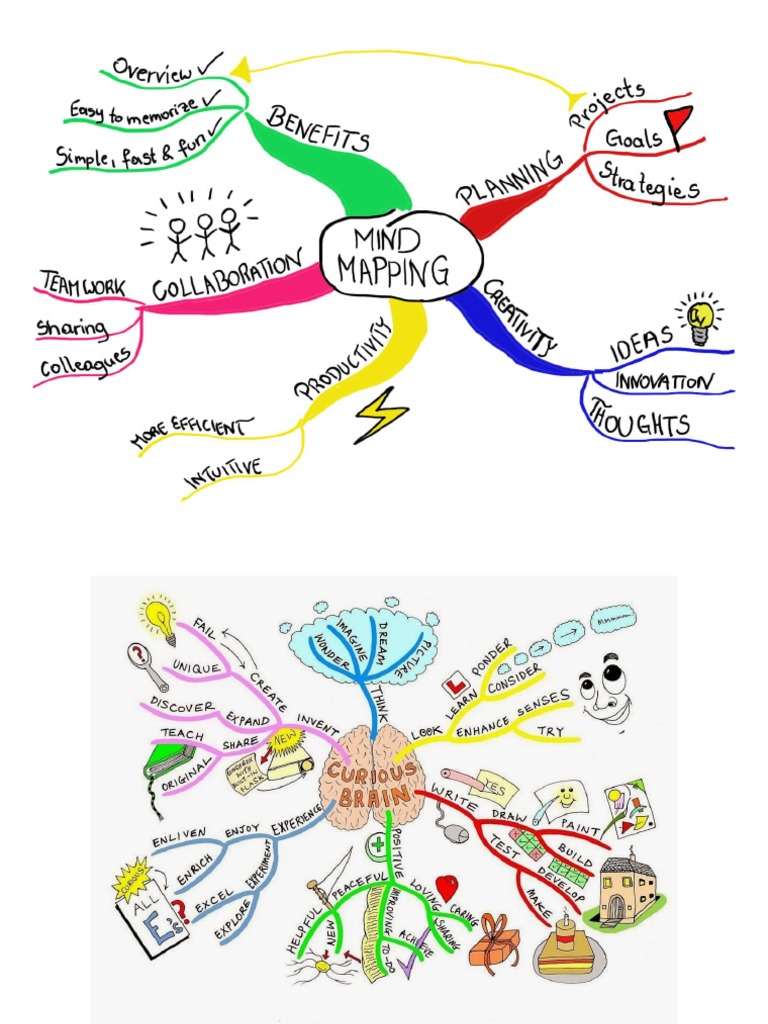 MIND
MAPPING
BENEFITS
Overview
Easy to memorize
Simple, fast & fun
PLANNING
Projects
Goals
Strategies
COLLABORATION
TEAMWORK
Sharing
Colleagues
PRODUCTIVITY
MORE EFFICIENT
INTUITIVE
CREATIVITY
IDEAS
INNOVATION
THOUGHTS
CURIOUS
BRAIN
THINK
WONDER
IMAGINE
DREAM
PICTURE
LOOK
LEARN
PONDER
CONSIDER
L
Mmmmm
ENHANCE
SENSES
TRY
INVENT
CREATE
FAIL
UNIQUE
?
EXPAND
DISCOVER
SHARE
TEACH
ORIGINAL
NEW
EXPERIENCE
ENJOY
ENLIVEN
ENRICH
EXPERIMENT
EXCEL
EXPLORE
CURIOUS
ALL
E's
?
POSITIVE
PEACEFUL
HELPFUL
MEN
IMPROVING
TO-DO
ACHIEVE
LOVING
CARING
SHARING
WRITE
YES
DRAW
PAINT
BUILD
TEST
DEVELOP
MAKE